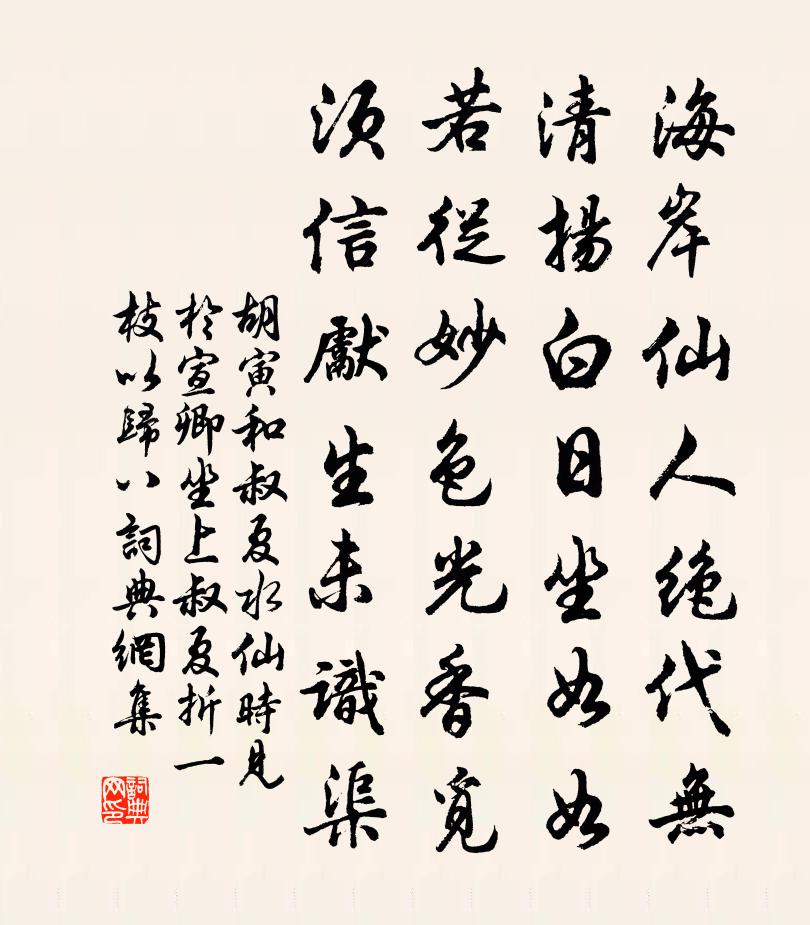 海岸仙人絶代無
清揚白日坐如如
若從妙色光香覓
須信獻生未識渠
胡寅和叔夏水仙時見
於宣卿坐上叔夏折一
枝以歸八詞典網集
詞典
網印